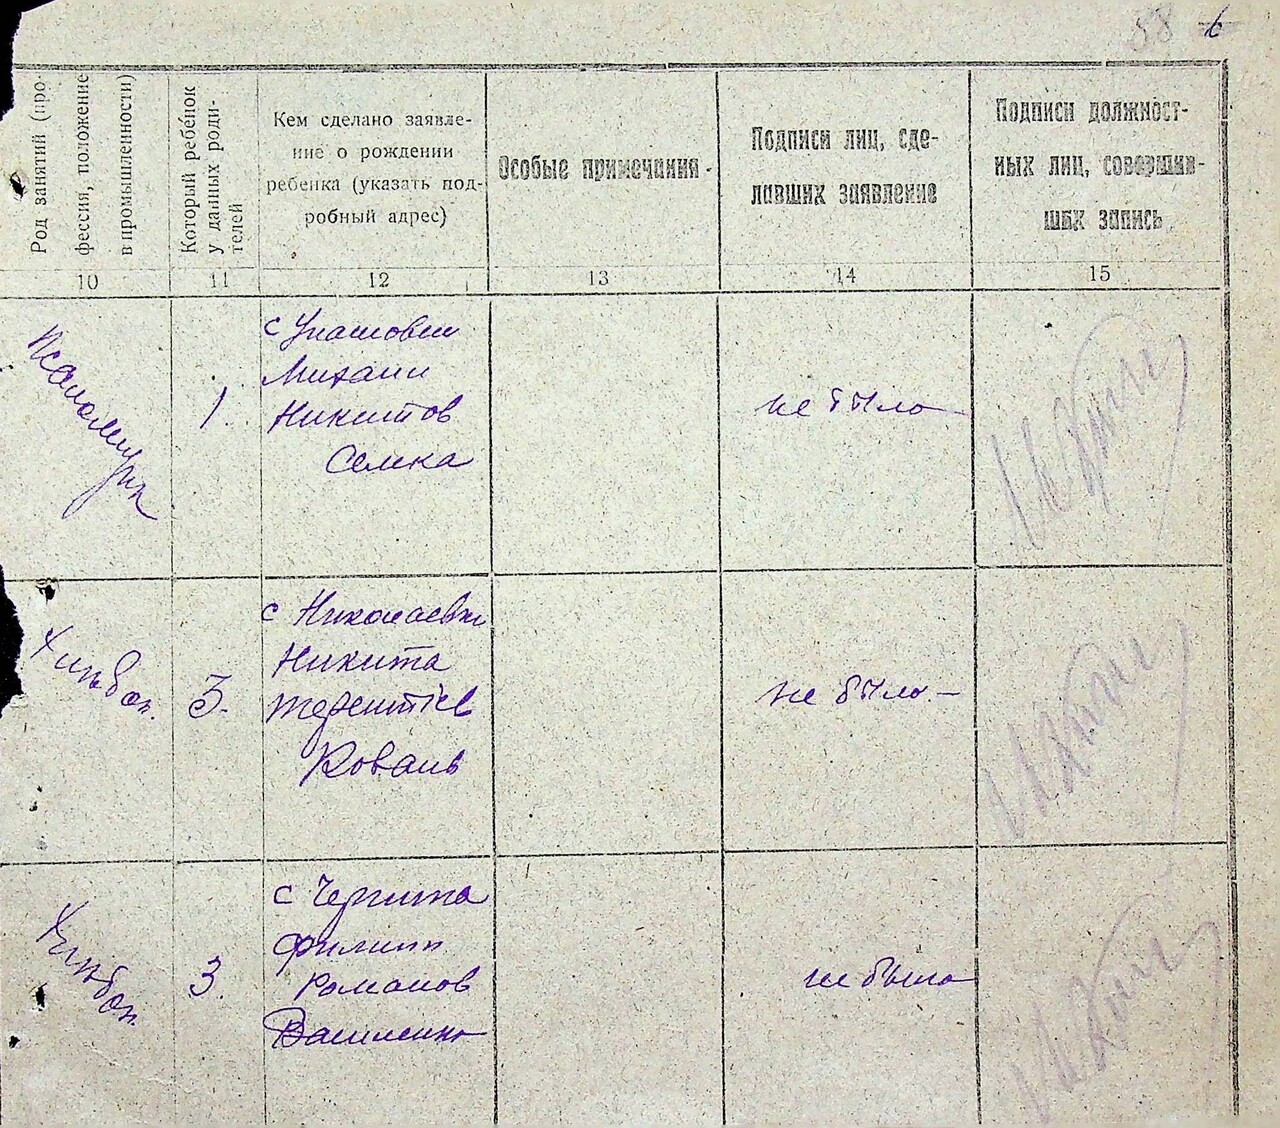 58 6
Род занятий (про-
фессия, положение
в промышленности)
Который ребенок
у данных роди-
телей
Кем сделано заявле-
ние о рождении
ребенка (указать под-
робный адрес)
Особые примечания
Подписи лиц, сде-
лавших заявление
Подписи должност-
ных лиц, совершив-
ших запись
10
11
12
13
14
15
Псаломщик
1.
с
Михаил
Никитов
не было
Хлѣбоп.
3.
с Николаевки
Никита
Терентіев
Коваль
не было —
Хлѣбоп.
3.
с
Филипп
Романов
Василенко
не было